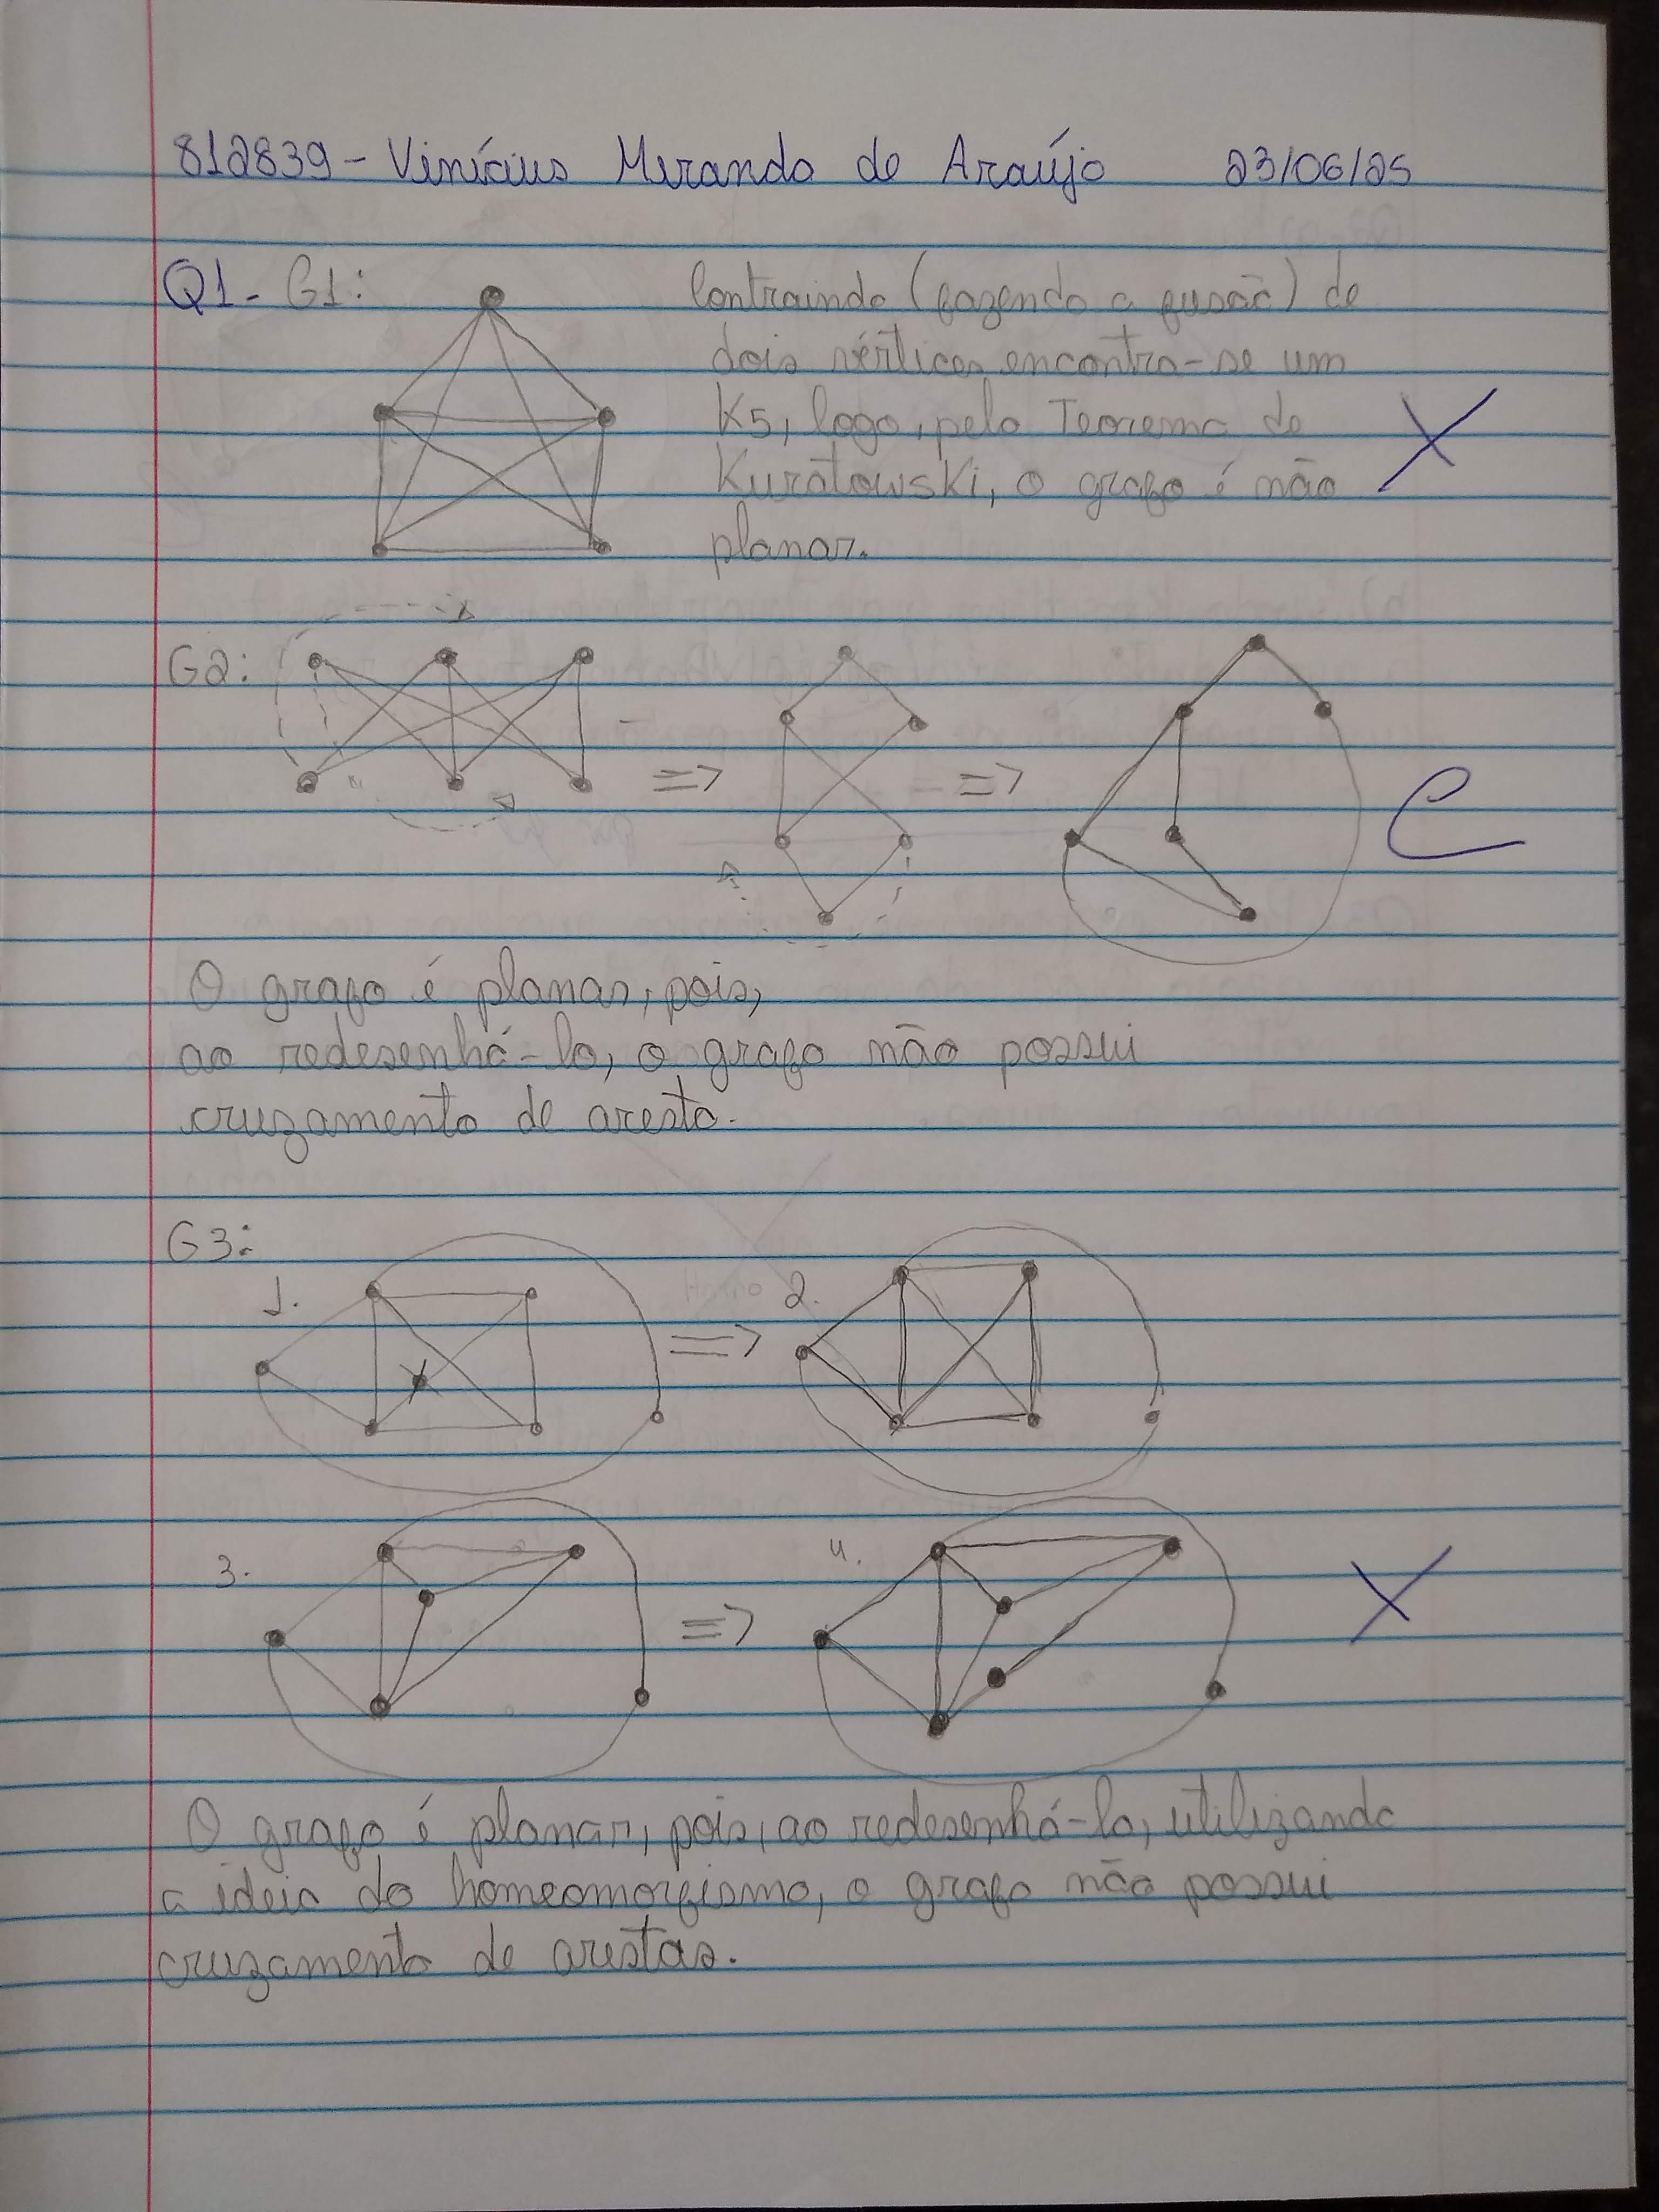 812839 - Vinícius Miranda de Araújo 23/06/25
Q1 - G1:
Contraindo (fazendo a fusão) de
dois vértices encontra-se um
K5, logo, pelo Teorema de
Kuratowski, o grafo é não
planar.
G2:
=> =>
O grafo é planar, pois,
ao redesenhá-lo, o grafo não possui
cruzamento de aresta.
G3:
1. => 2.
3. => 4.
O grafo é planar, pois, ao redesenhá-lo, utilizando
a ideia do homeomorfismo, o grafo não possui
cruzamento de arestas.